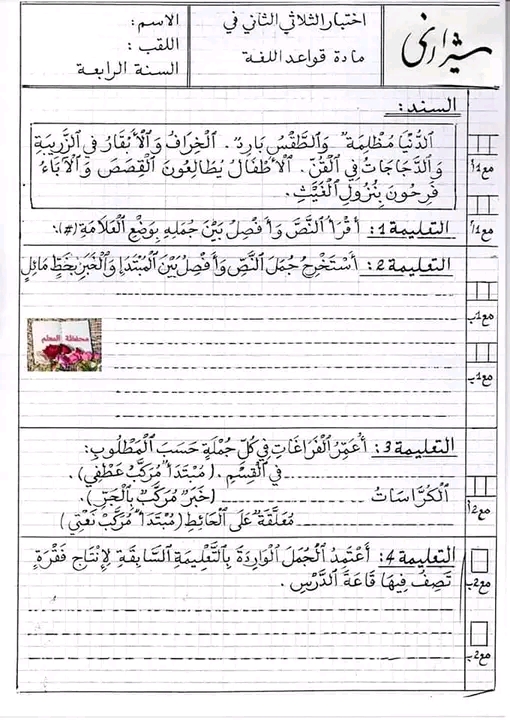 اختبار الثلاثي الثاني في
مادة قواعد اللغة
الاسم:
اللقب:
السنة الرابعة
السند:
الدُّنْيَا مُظْلِمَةٌ وَالطَّقْسُ بَارِدٌ. الْخِرَافُ وَالْأَبْقَارُ فِي الزَّرِيبَةِ
وَالدَّجَاجَاتُ فِي الْقُنِّ. الْأَطْفَالُ يُطَالِعُونَ الْقِصَصَ وَالْآبَاءُ
فَرِحُونَ بِنُزُولِ الْغَيْثِ.
مع1أ
التعليمة 1: أَقْرَأُ النَّصَّ وَأَفْصِلُ بَيْنَ جُمَلِهِ بِوَضْعِ الْعَلَامَةِ (#).
مع1أ
التعليمة 2: أَسْتَخْرِجُ جُمَلَ النَّصِّ وَأَفْصِلُ بَيْنَ الْمُبْتَدَإِ وَالْخَبَرِ بِخَطٍّ مَائِلٍ
مع1ب
محفظة المعلم
مع1ب
التعليمة 3: أُعَمِّرُ الْفَرَاغَاتِ فِي كُلِّ جُمْلَةٍ حَسَبَ الْمَطْلُوبِ:
فِي الْقِسْمِ. (مُبْتَدَأ مُرَكَّب عَطْفِي).
الْكُرَّاسَاتُ (خَبَر مُرَكَّب بِالْجَرِّ).
مع2أ
مُعَلَّقَةٌ عَلَى الْحَائِطِ (مُبْتَدَأ مُرَكَّب نَعْتِي)
التعليمة 4: أَعْتَمِدُ الْجُمَلَ الْوَارِدَةَ بِالتَّعْلِيمَةِ السَّابِقَةِ لِإِنْتَاجِ فَقْرَةٍ
تَصِفُ فِيهَا قَاعَةَ الدَّرْسِ.
مع2ب
مع2ب